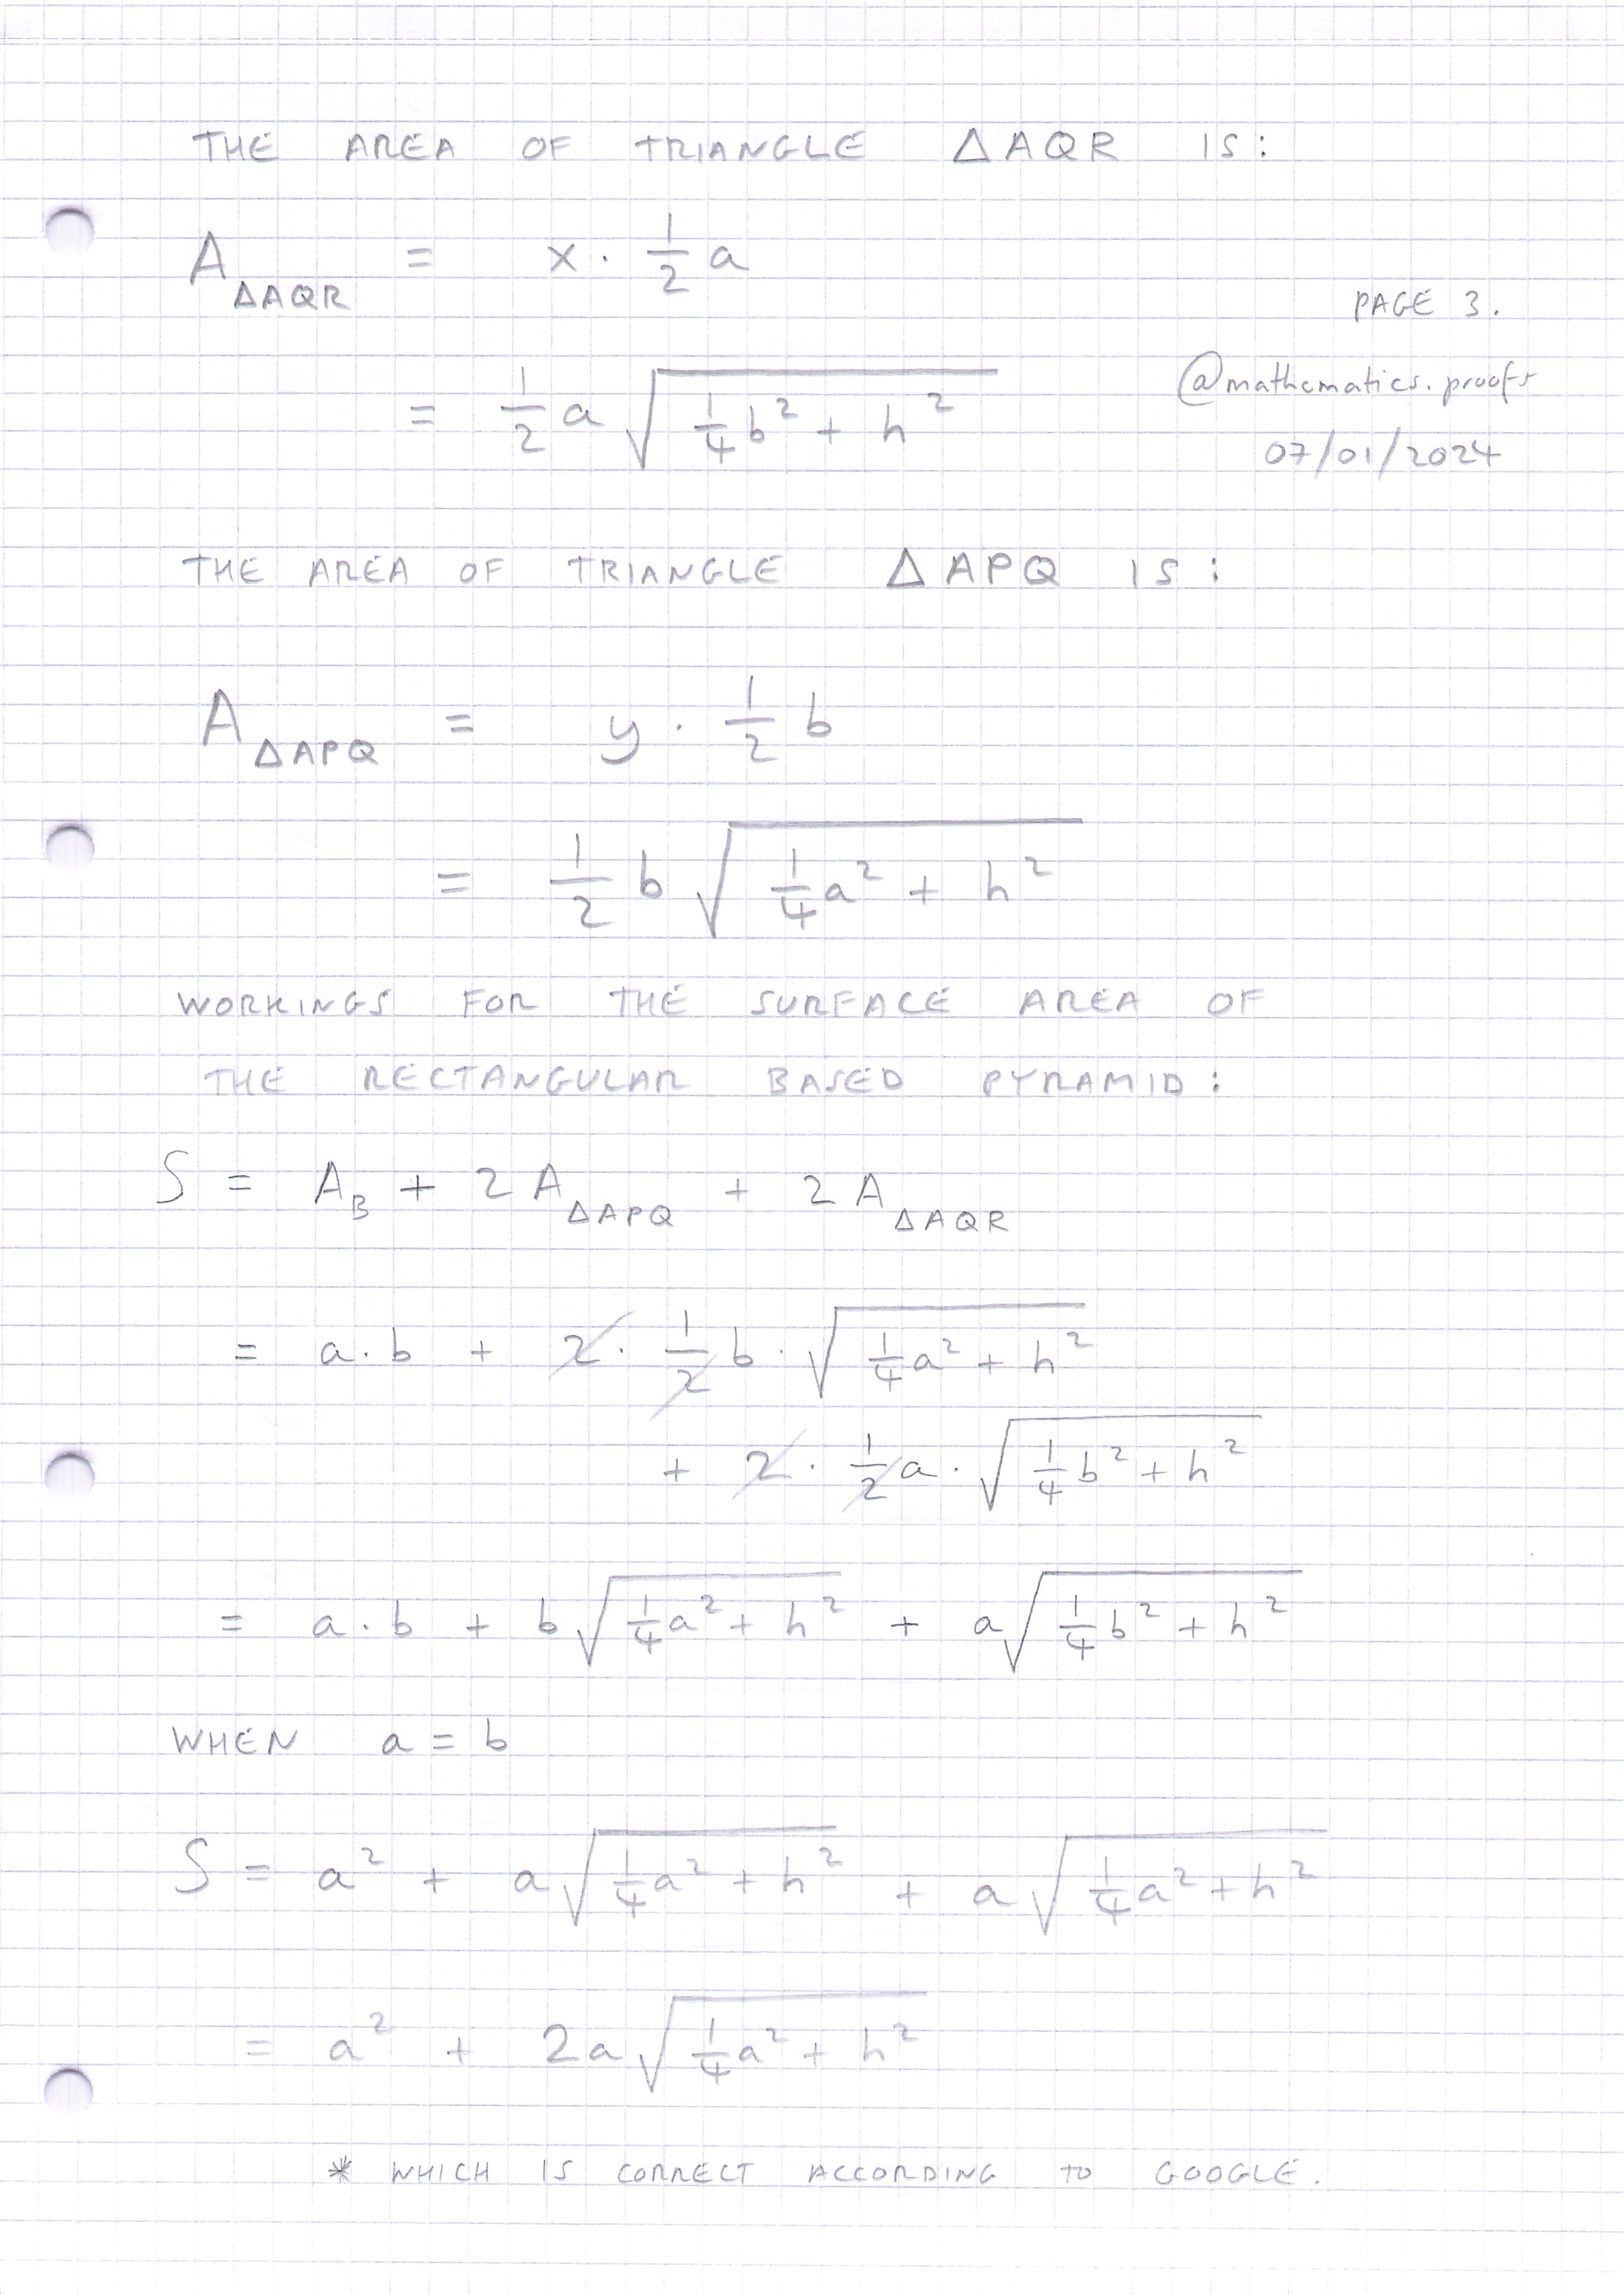 THE AREA OF TRIANGLE △AQR IS:
A△AQR = x · 1/2 a
PAGE 3.
= 1/2 a √(1/4 b² + h²)
@mathematics.proofs
07/01/2024
THE AREA OF TRIANGLE △APQ IS:
A△APQ = y · 1/2 b
= 1/2 b √(1/4 a² + h²)
WORKINGS FOR THE SURFACE AREA OF
THE RECTANGULAR BASED PYRAMID:
S = A_B + 2A△APQ + 2A△AQR
= a · b + 2 · 1/2 b · √(1/4 a² + h²)
+ 2 · 1/2 a · √(1/4 b² + h²)
= a · b + b√(1/4 a² + h²) + a√(1/4 b² + h²)
WHEN a = b
S = a² + a√(1/4 a² + h²) + a√(1/4 a² + h²)
= a² + 2a√(1/4 a² + h²)
* WHICH IS CORRECT ACCORDING TO GOOGLE.